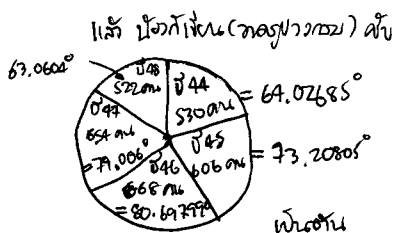 แล้ว น้องก็เขียน(วาดรูปวงกลม) ครับ
63.0604°
ปี 48
522 คน
ปี 44
530 คน
= 64.02685°
ปี 47
654 คน
= 79.006°
ปี 45
606 คน
= 73.20805°
ปี 46
668 คน
= 80.69799°
เป็นต้น